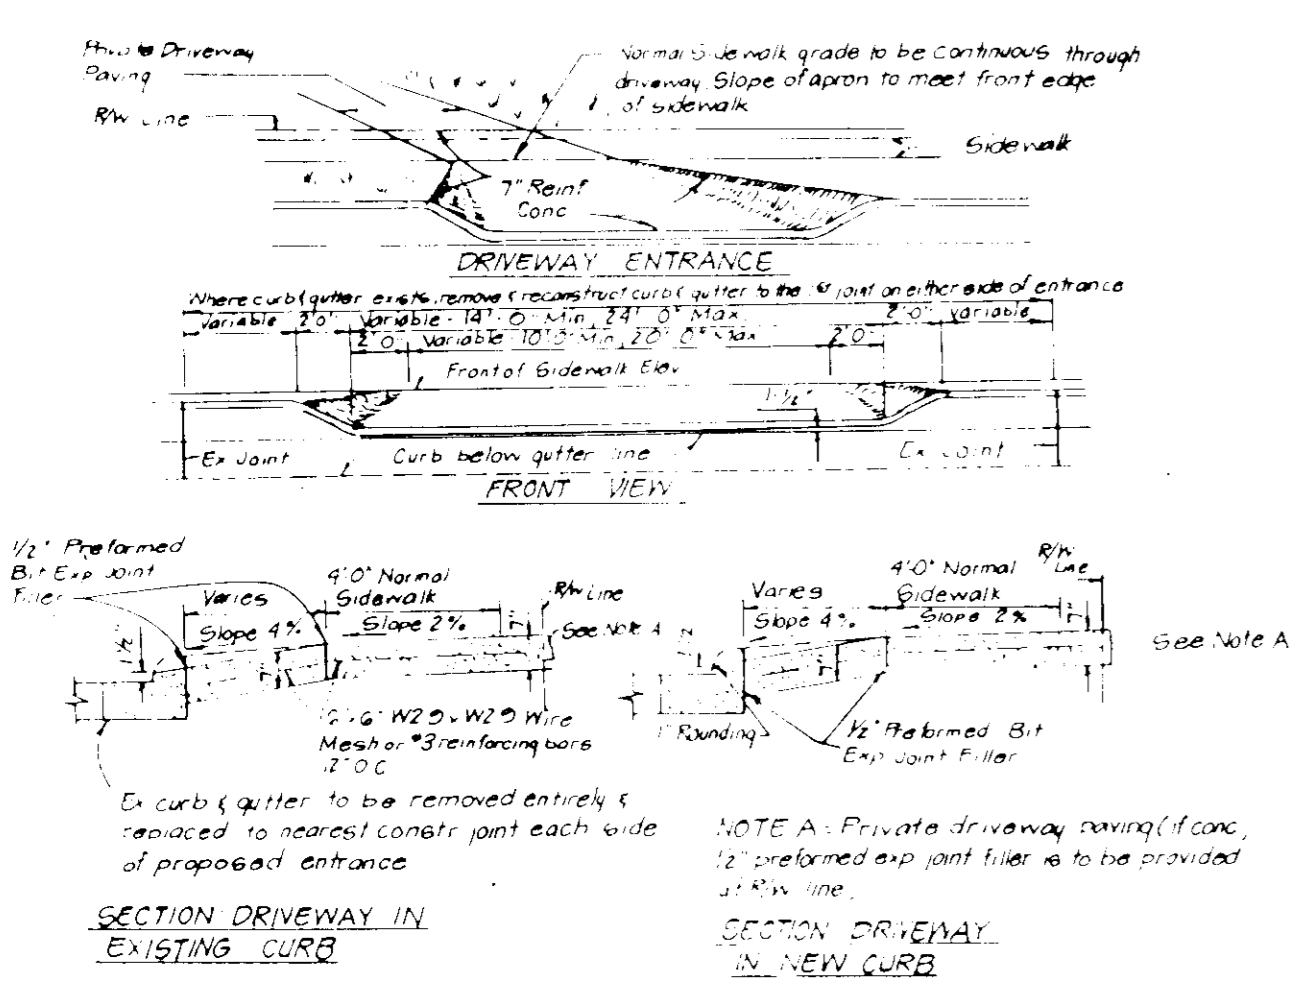 Private Driveway
Paving
R/W Line
Normal Sidewalk grade to be continuous through
driveway. Slope of apron to meet front edge
of sidewalk
Sidewalk
7" Reinf
Conc
DRIVEWAY ENTRANCE
Where curb & gutter exists, remove & reconstruct curb & gutter to the joint on either side of entrance
Variable 2'0" Variable - 14'-0" Min, 24'0" Max 2'-0" Variable
2'0" Variable 10'0" Min, 20'0" Max 2'0"
Front of Sidewalk Elev
1-1/2"
Ex Joint Curb below gutter line Ex Joint
FRONT VIEW
1/2" Preformed
Bit Exp Joint
Filler
Varies
4'-0" Normal
Sidewalk
R/W Line
Slope 4% Slope 2%
See Note A
1 1/2"
7"
7"
6" W2.9 x W2.9 Wire
Mesh or #3 reinforcing bars
12" O C
Ex curb & gutter to be removed entirely &
replaced to nearest constr joint each side
of proposed entrance
SECTION DRIVEWAY IN
EXISTING CURB
R/W
Line
4'-0" Normal
Varies Sidewalk
Slope 4% Slope 2%
7"
7"
See Note A
1" Rounding
1/2" Preformed Bit
Exp Joint Filler
NOTE A: Private driveway paving (if conc,
1/2" preformed exp joint filler is to be provided
at R/W line.
SECTION DRIVEWAY
IN NEW CURB